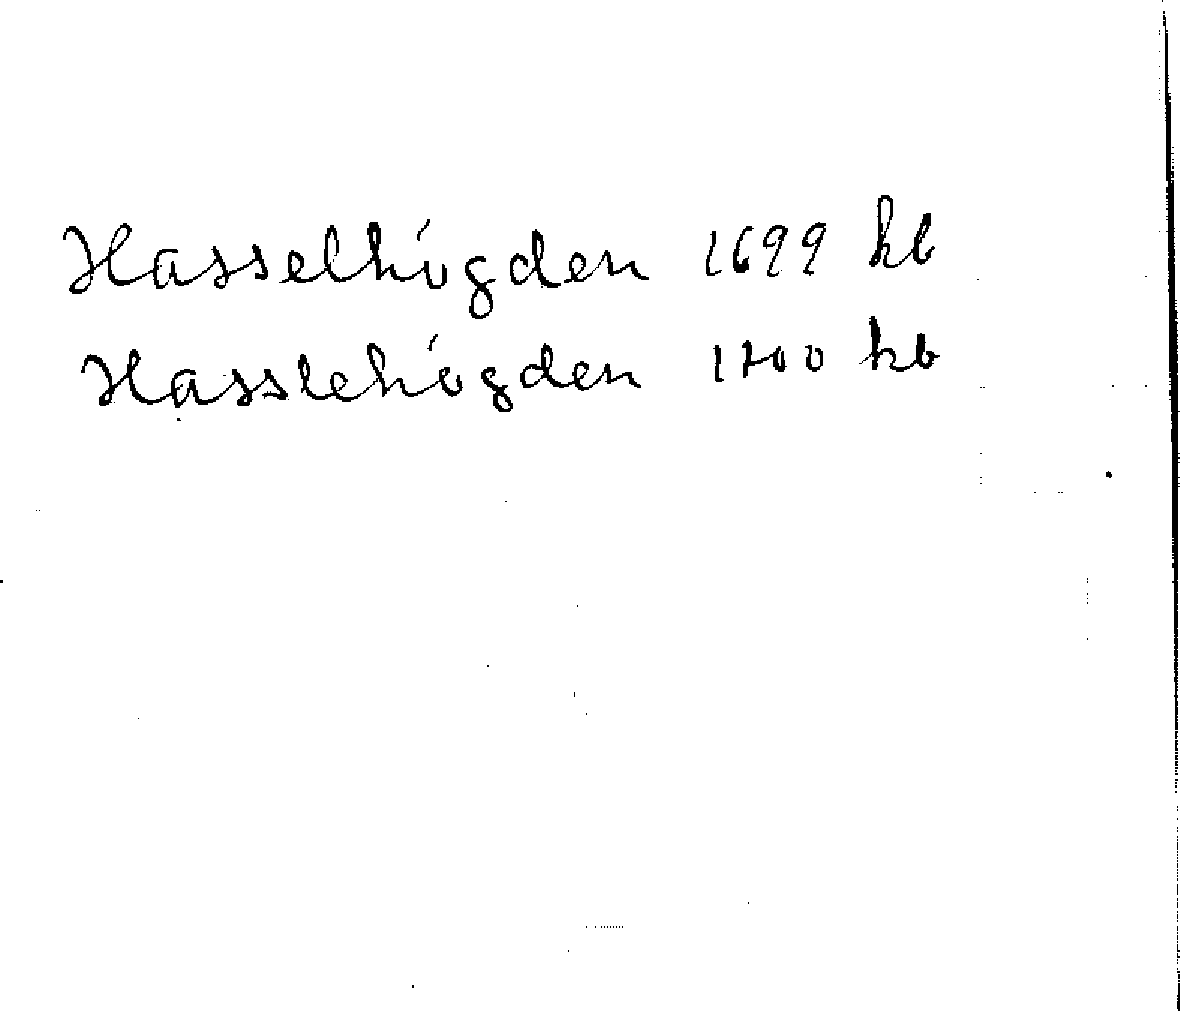 Hasselhögden 1699 kb
Hasslehögden 1700 kb